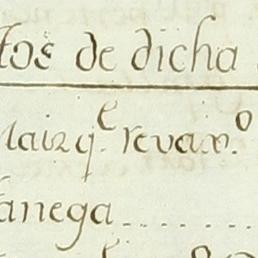 tos de dicha
Mairq.e revax.o
anega......